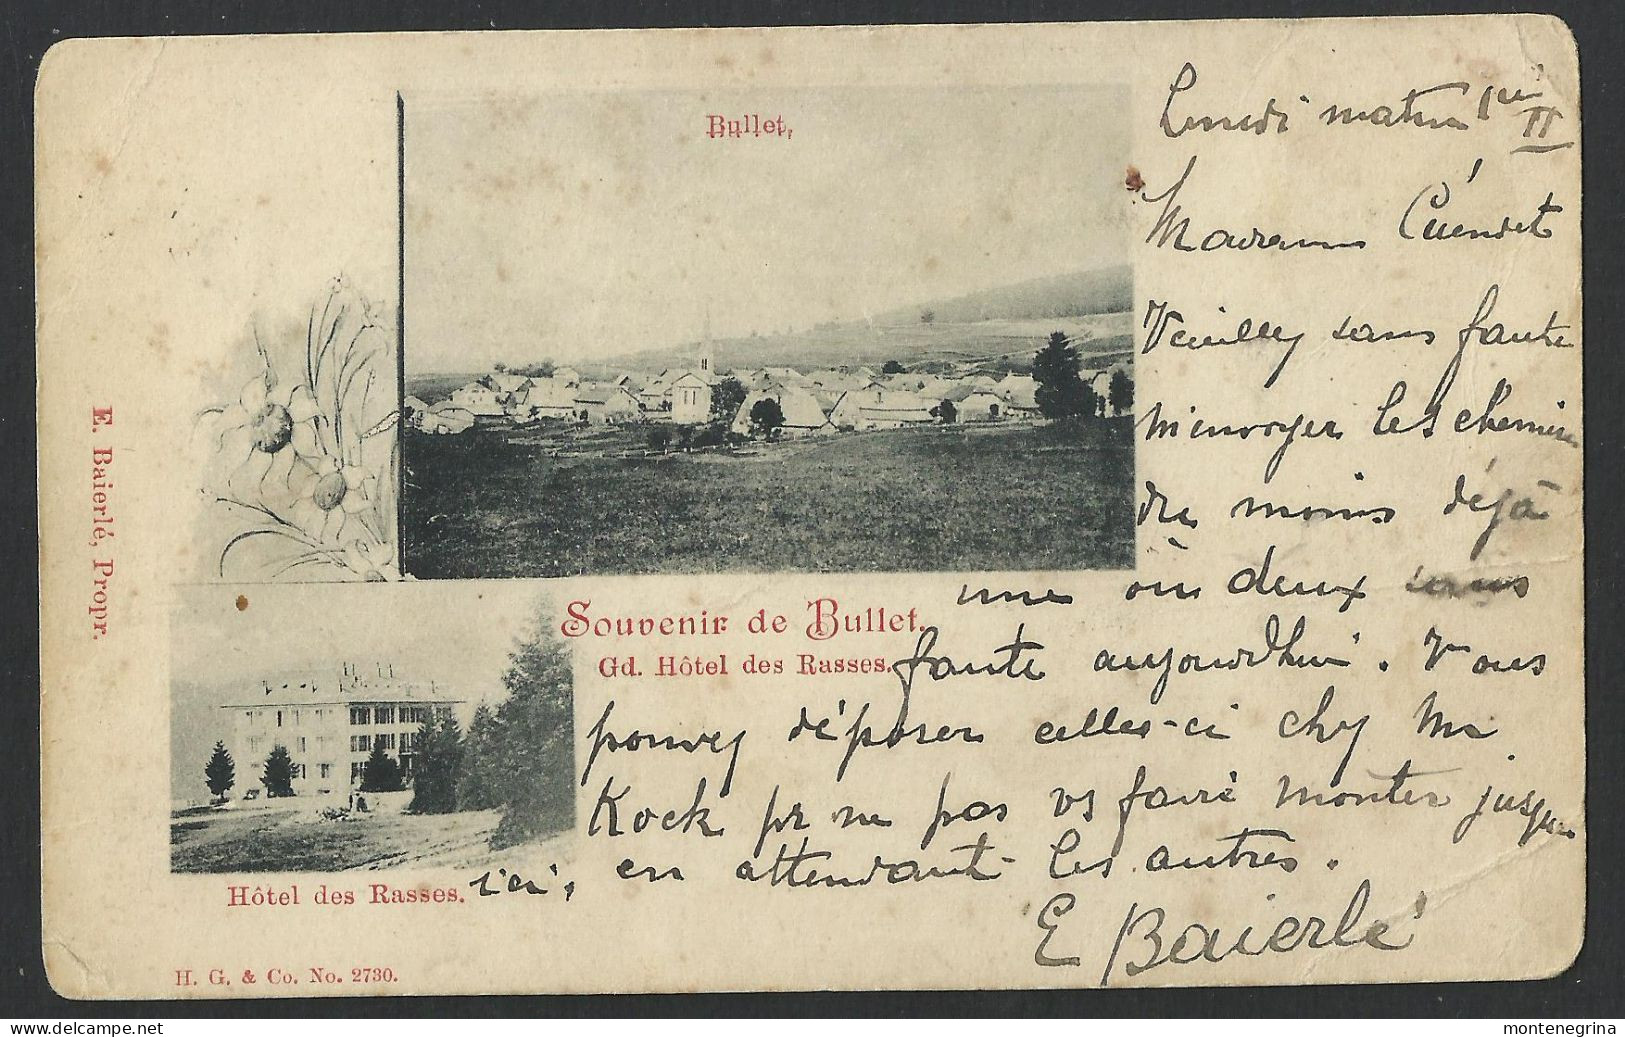 Bullet,
Lundi matin 1er II
Madame Cuéndet
Veuillez sans faute
m'envoyer les chemises
du moins déjà
une ou deux sans
faute aujourdhui. Vous
pouvez déposer celles-ci chez Mr
Kock pr ne pas vs faire monter jusque
ici, en attendant les autres.
E Baierlé
Souvenir de Bullet.
Gd. Hôtel des Rasses.
Hôtel des Rasses.
E. Baierlé, Propr.
H. G. & Co. No. 2730.
montenegrina